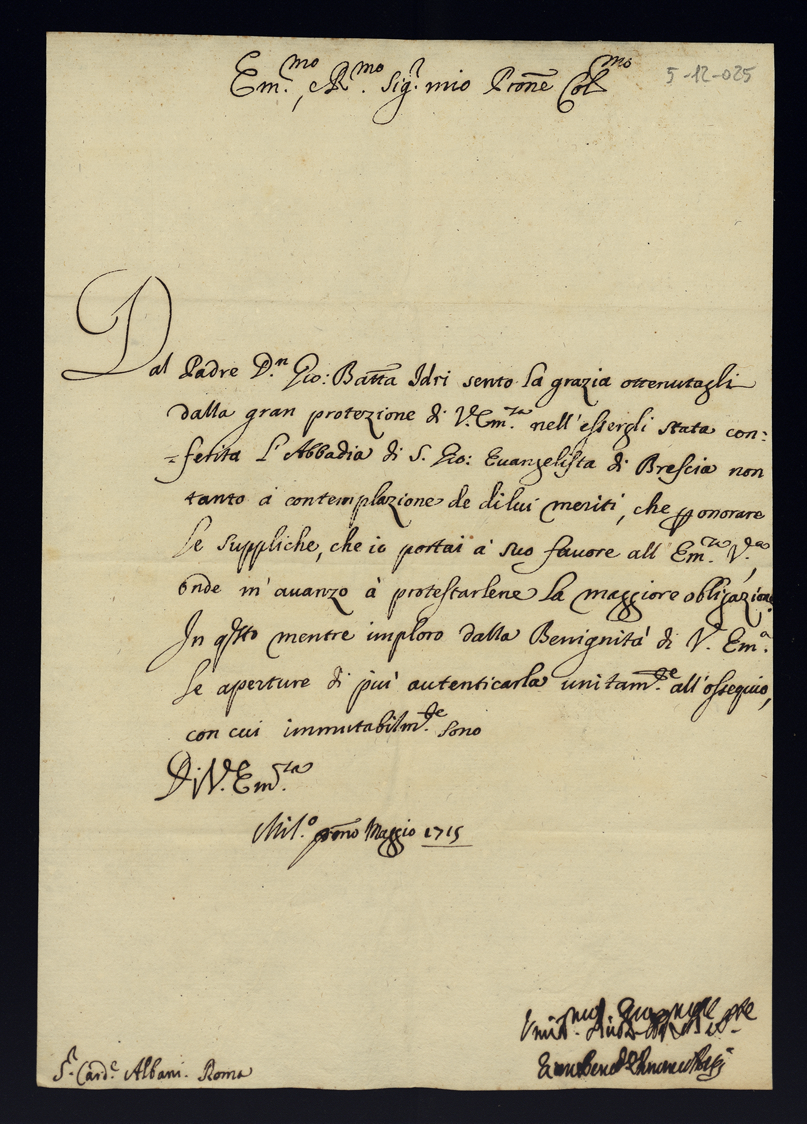 Em.mo, e R.mo Sig.r mio Prone Col.mo
5-12-025
Dal Padre D.n Gio: Batta Idri sento la grazia ottenutagli
dalla gran protezione di V. Em.za nell'essergli stata con:
=ferita l'Abbadia di S. Gio: Evangelista di Brescia non
tanto à contemplazione de dilui meriti, che p onorare
le suppliche, che io portai à suo favore all'Em.za V.ra
onde m'avanzo à protestarlene la maggiore obligazione.
In q̃sto mentre imploro dalla Benignità di V. Em.a
le aperture di più autenticarla unitam.te all'ossequio,
con cui immutabilm.te sono
Di V. Em.za
Mil.o pmo Maggio 1715
S.r Card.e Albani. Roma